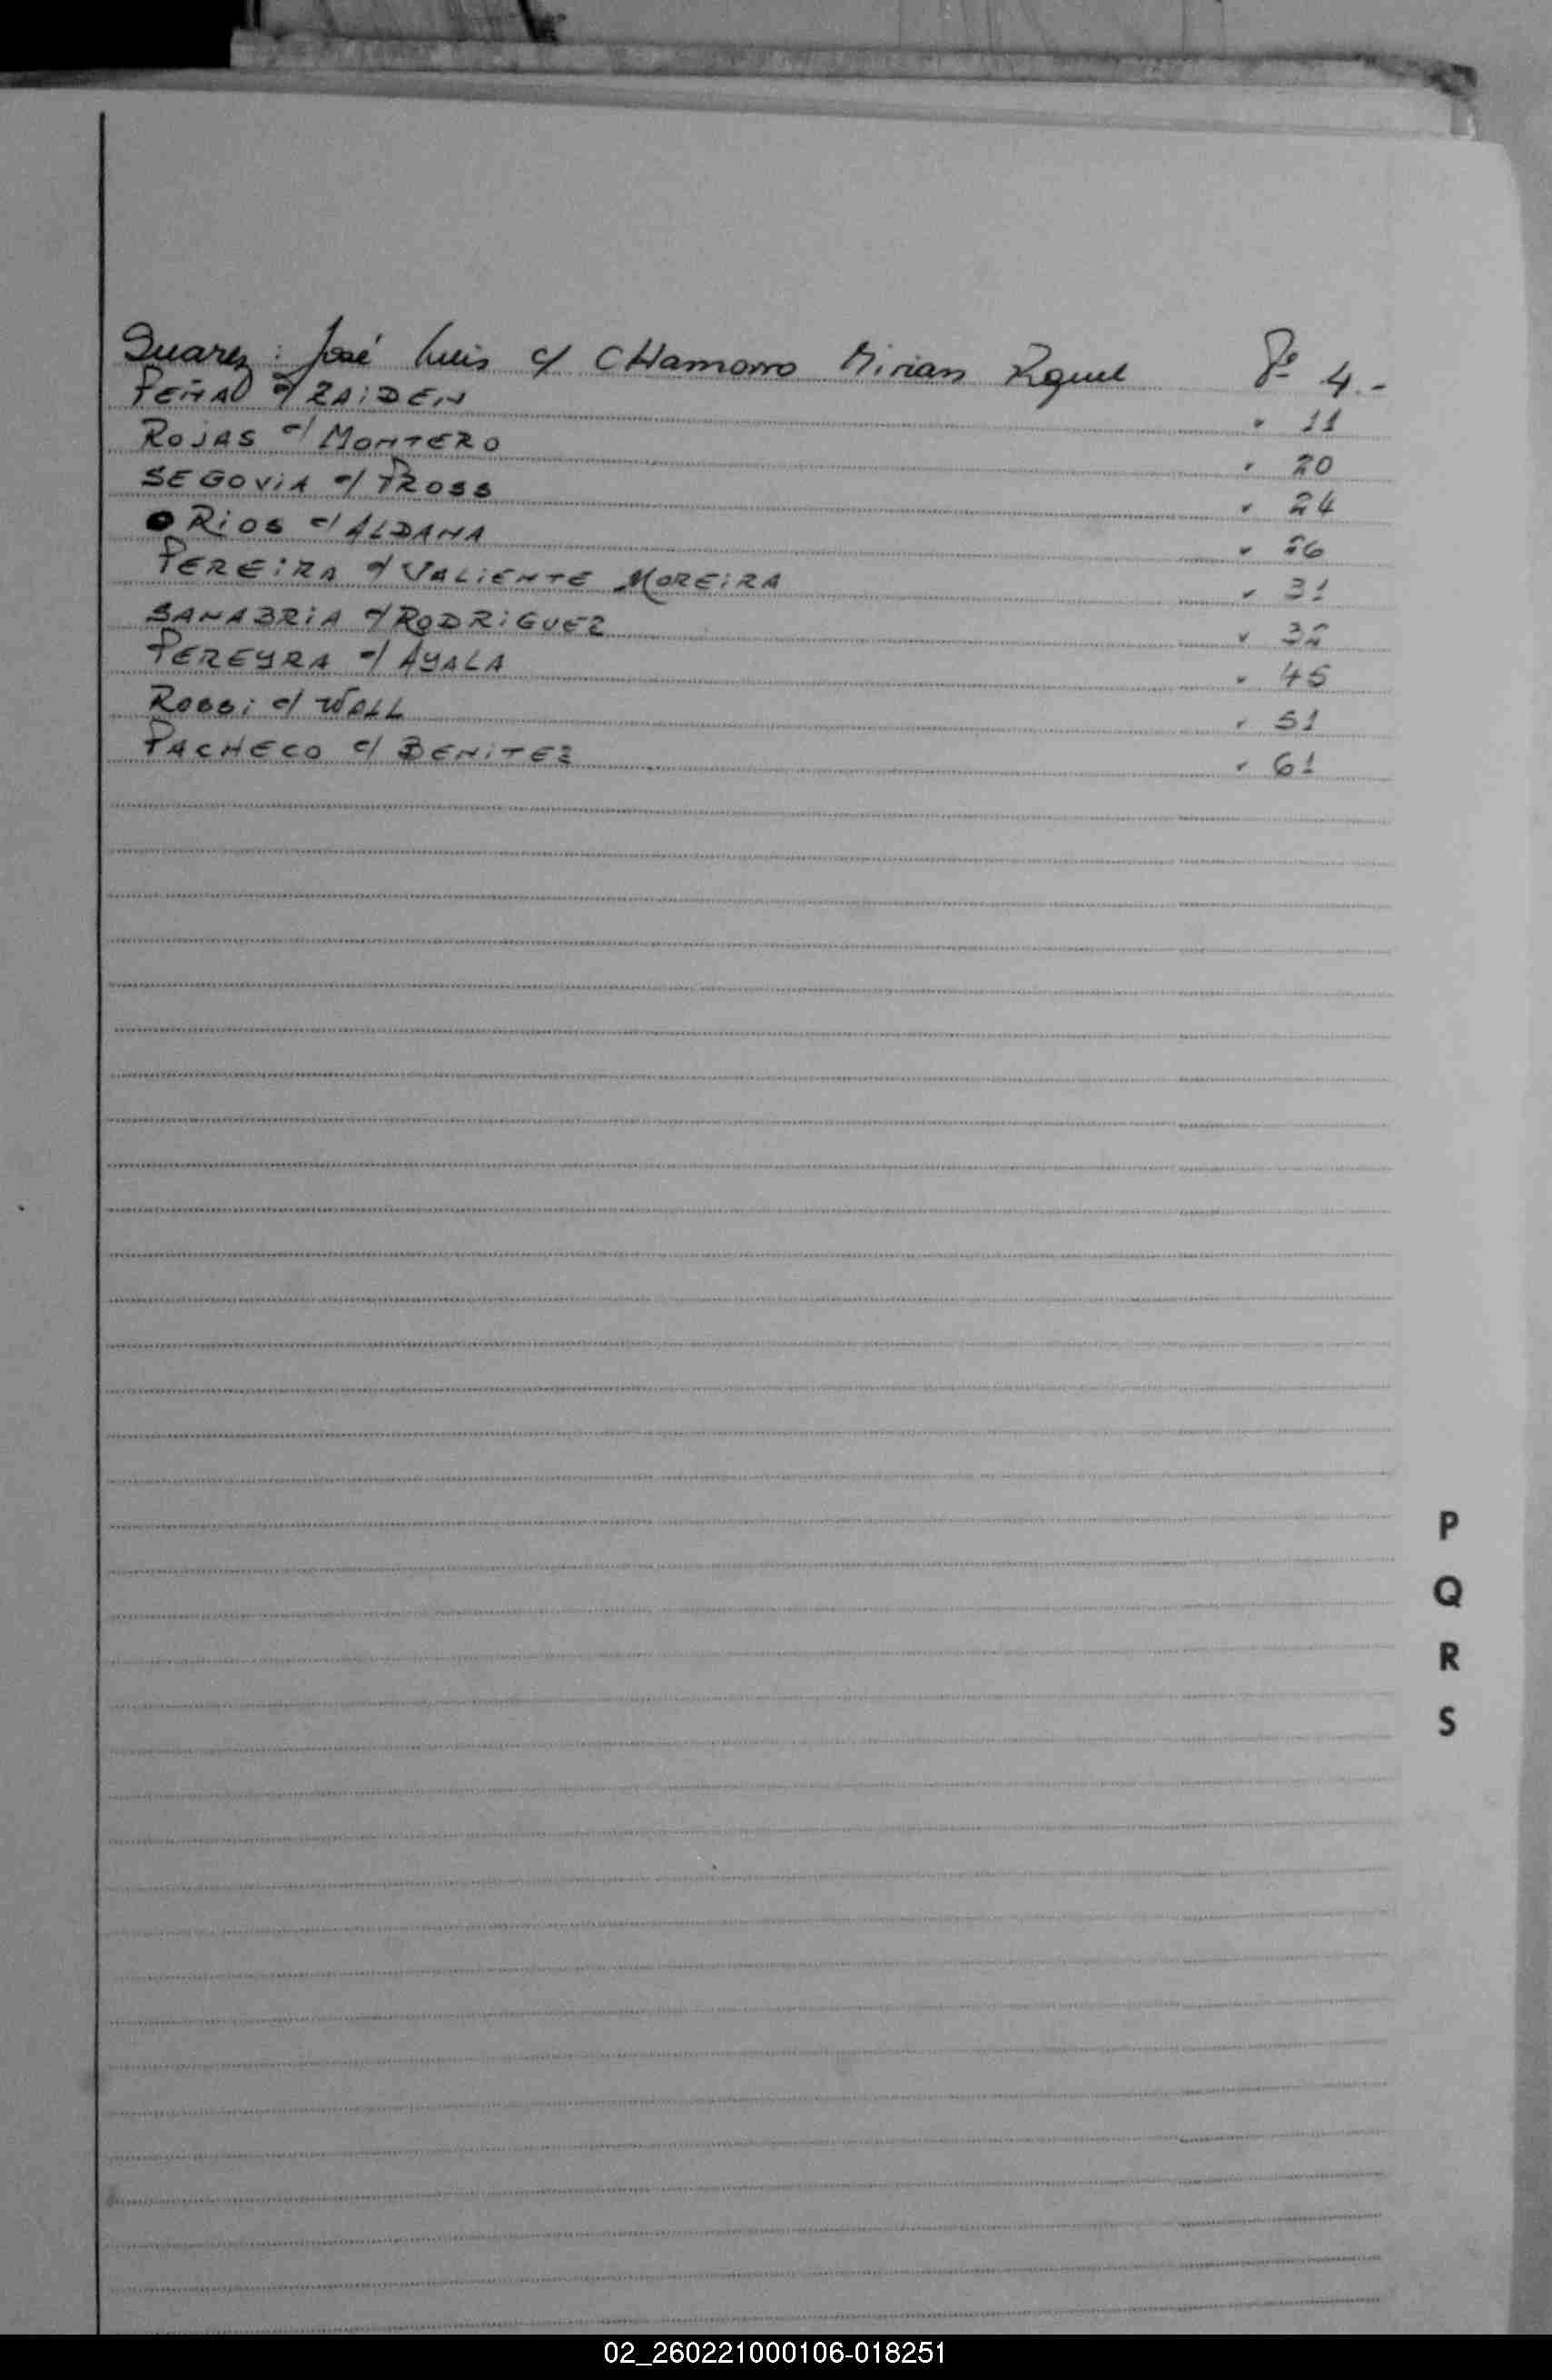 Suarez: José Luis c/ CHamorro Mirian Rquel Fº 4.-
PEÑA c/ ZAiDEN " 11
ROJAS c/ MONTERO " 20
SEGOViA c/ PROSS " 24
RiOS c/ ALDANA " 26
PEREiRA c/ VALiENTE MOREiRA " 31
SANABRiA c/ RODRiGUEZ " 32
PEREYRA c/ AYALA " 45
ROSSi c/ WALL " 51
PACHECO c/ BENiTEZ " 61
P
Q
R
S
02_260221000106-018251